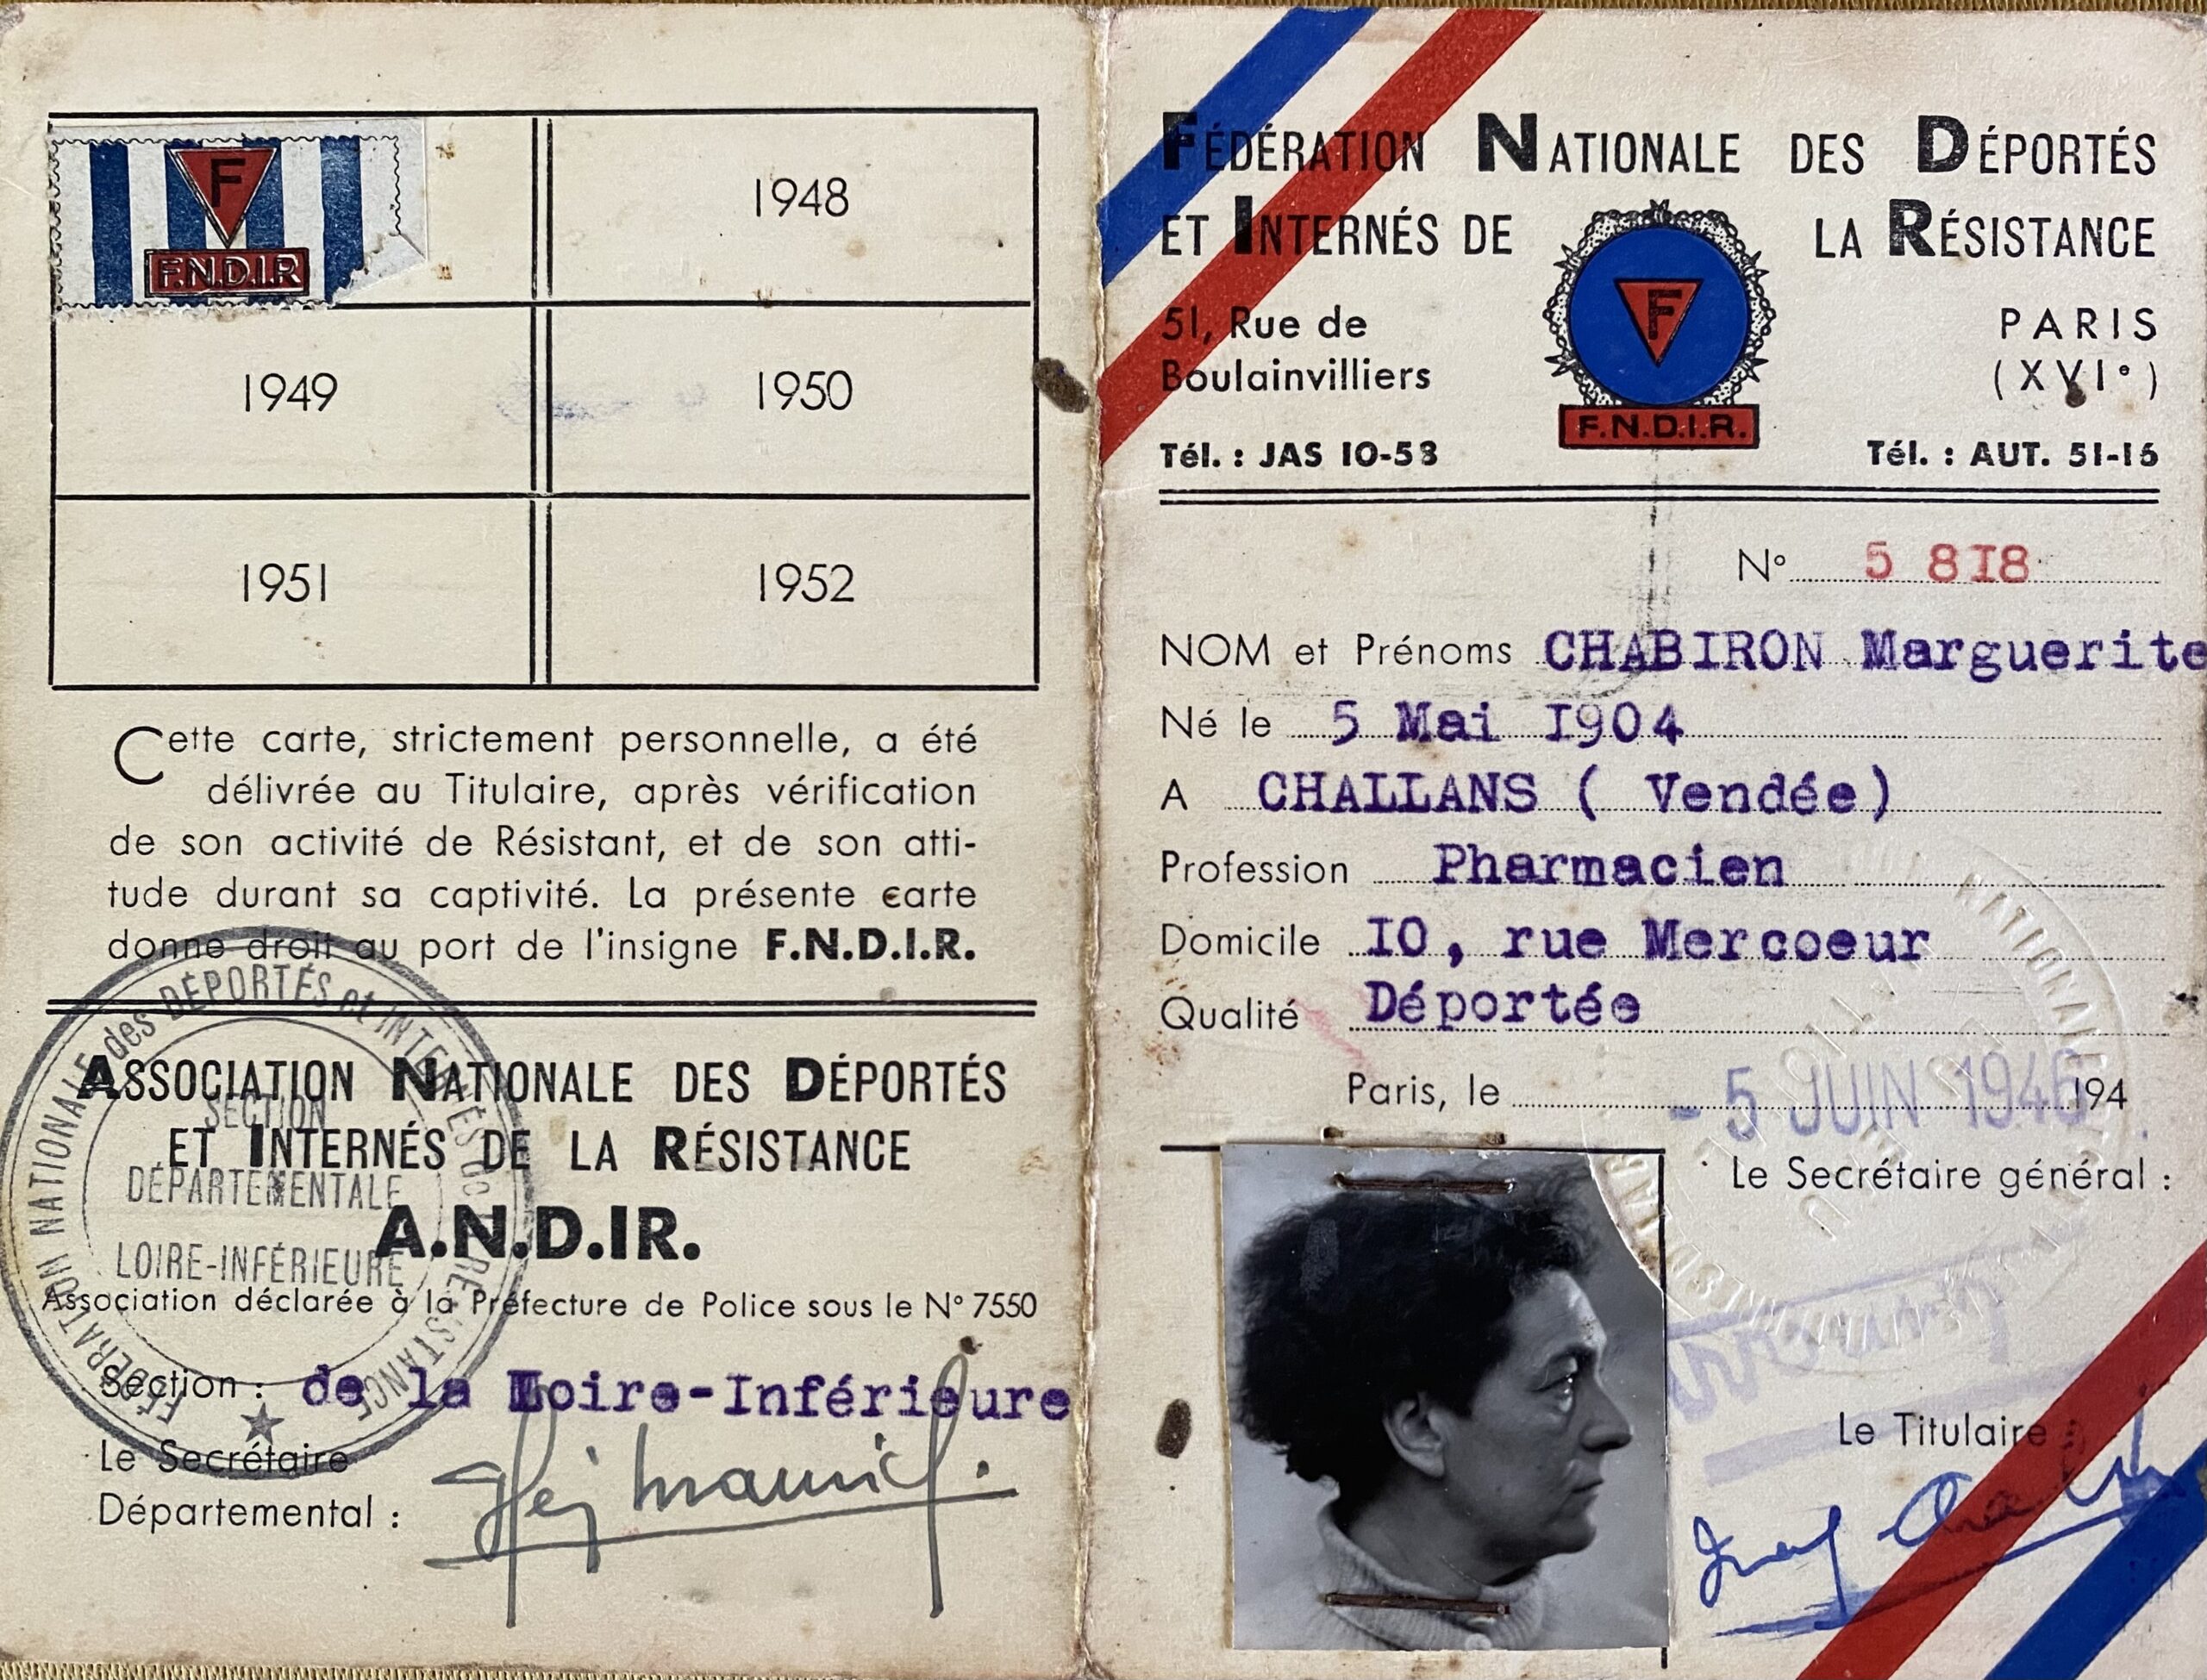 F
F.N.D.I.R
1948
1949
1950
1951
1952
Cette carte, strictement personnelle, a été
délivrée au Titulaire, après vérification
de son activité de Résistant, et de son atti-
tude durant sa captivité. La présente carte
donne droit au port de l'insigne F.N.D.I.R.
ASSOCIATION NATIONALE DES DÉPORTÉS
ET INTERNÉS DE LA RÉSISTANCE
A.N.D.IR.
Association déclarée à la Préfecture de Police sous le N° 7550
Section : de la Loire-Inférieure
Le Secrétaire
Départemental :
FÉDÉRATION NATIONALE des DÉPORTÉS et INTERNÉS de la RÉSISTANCE
SECTION
DÉPARTEMENTALE
LOIRE-INFÉRIEURE
FÉDÉRATION NATIONALE DES DÉPORTÉS
ET INTERNÉS DE LA RÉSISTANCE
51, Rue de
Boulainvilliers
F
F.N.D.I.R.
PARIS
(XVI°)
Tél. : JAS 10-53
Tél. : AUT. 51-16
N° 5 8I8
NOM et Prénoms CHABIRON Marguerite
Né le 5 Mai I904
A CHALLANS ( Vendée)
Profession Pharmacien
Domicile I0, rue Mercoeur
Qualité Déportée
Paris, le - 5 JUIN 1946 194
Le Secrétaire général :
Le Titulaire :